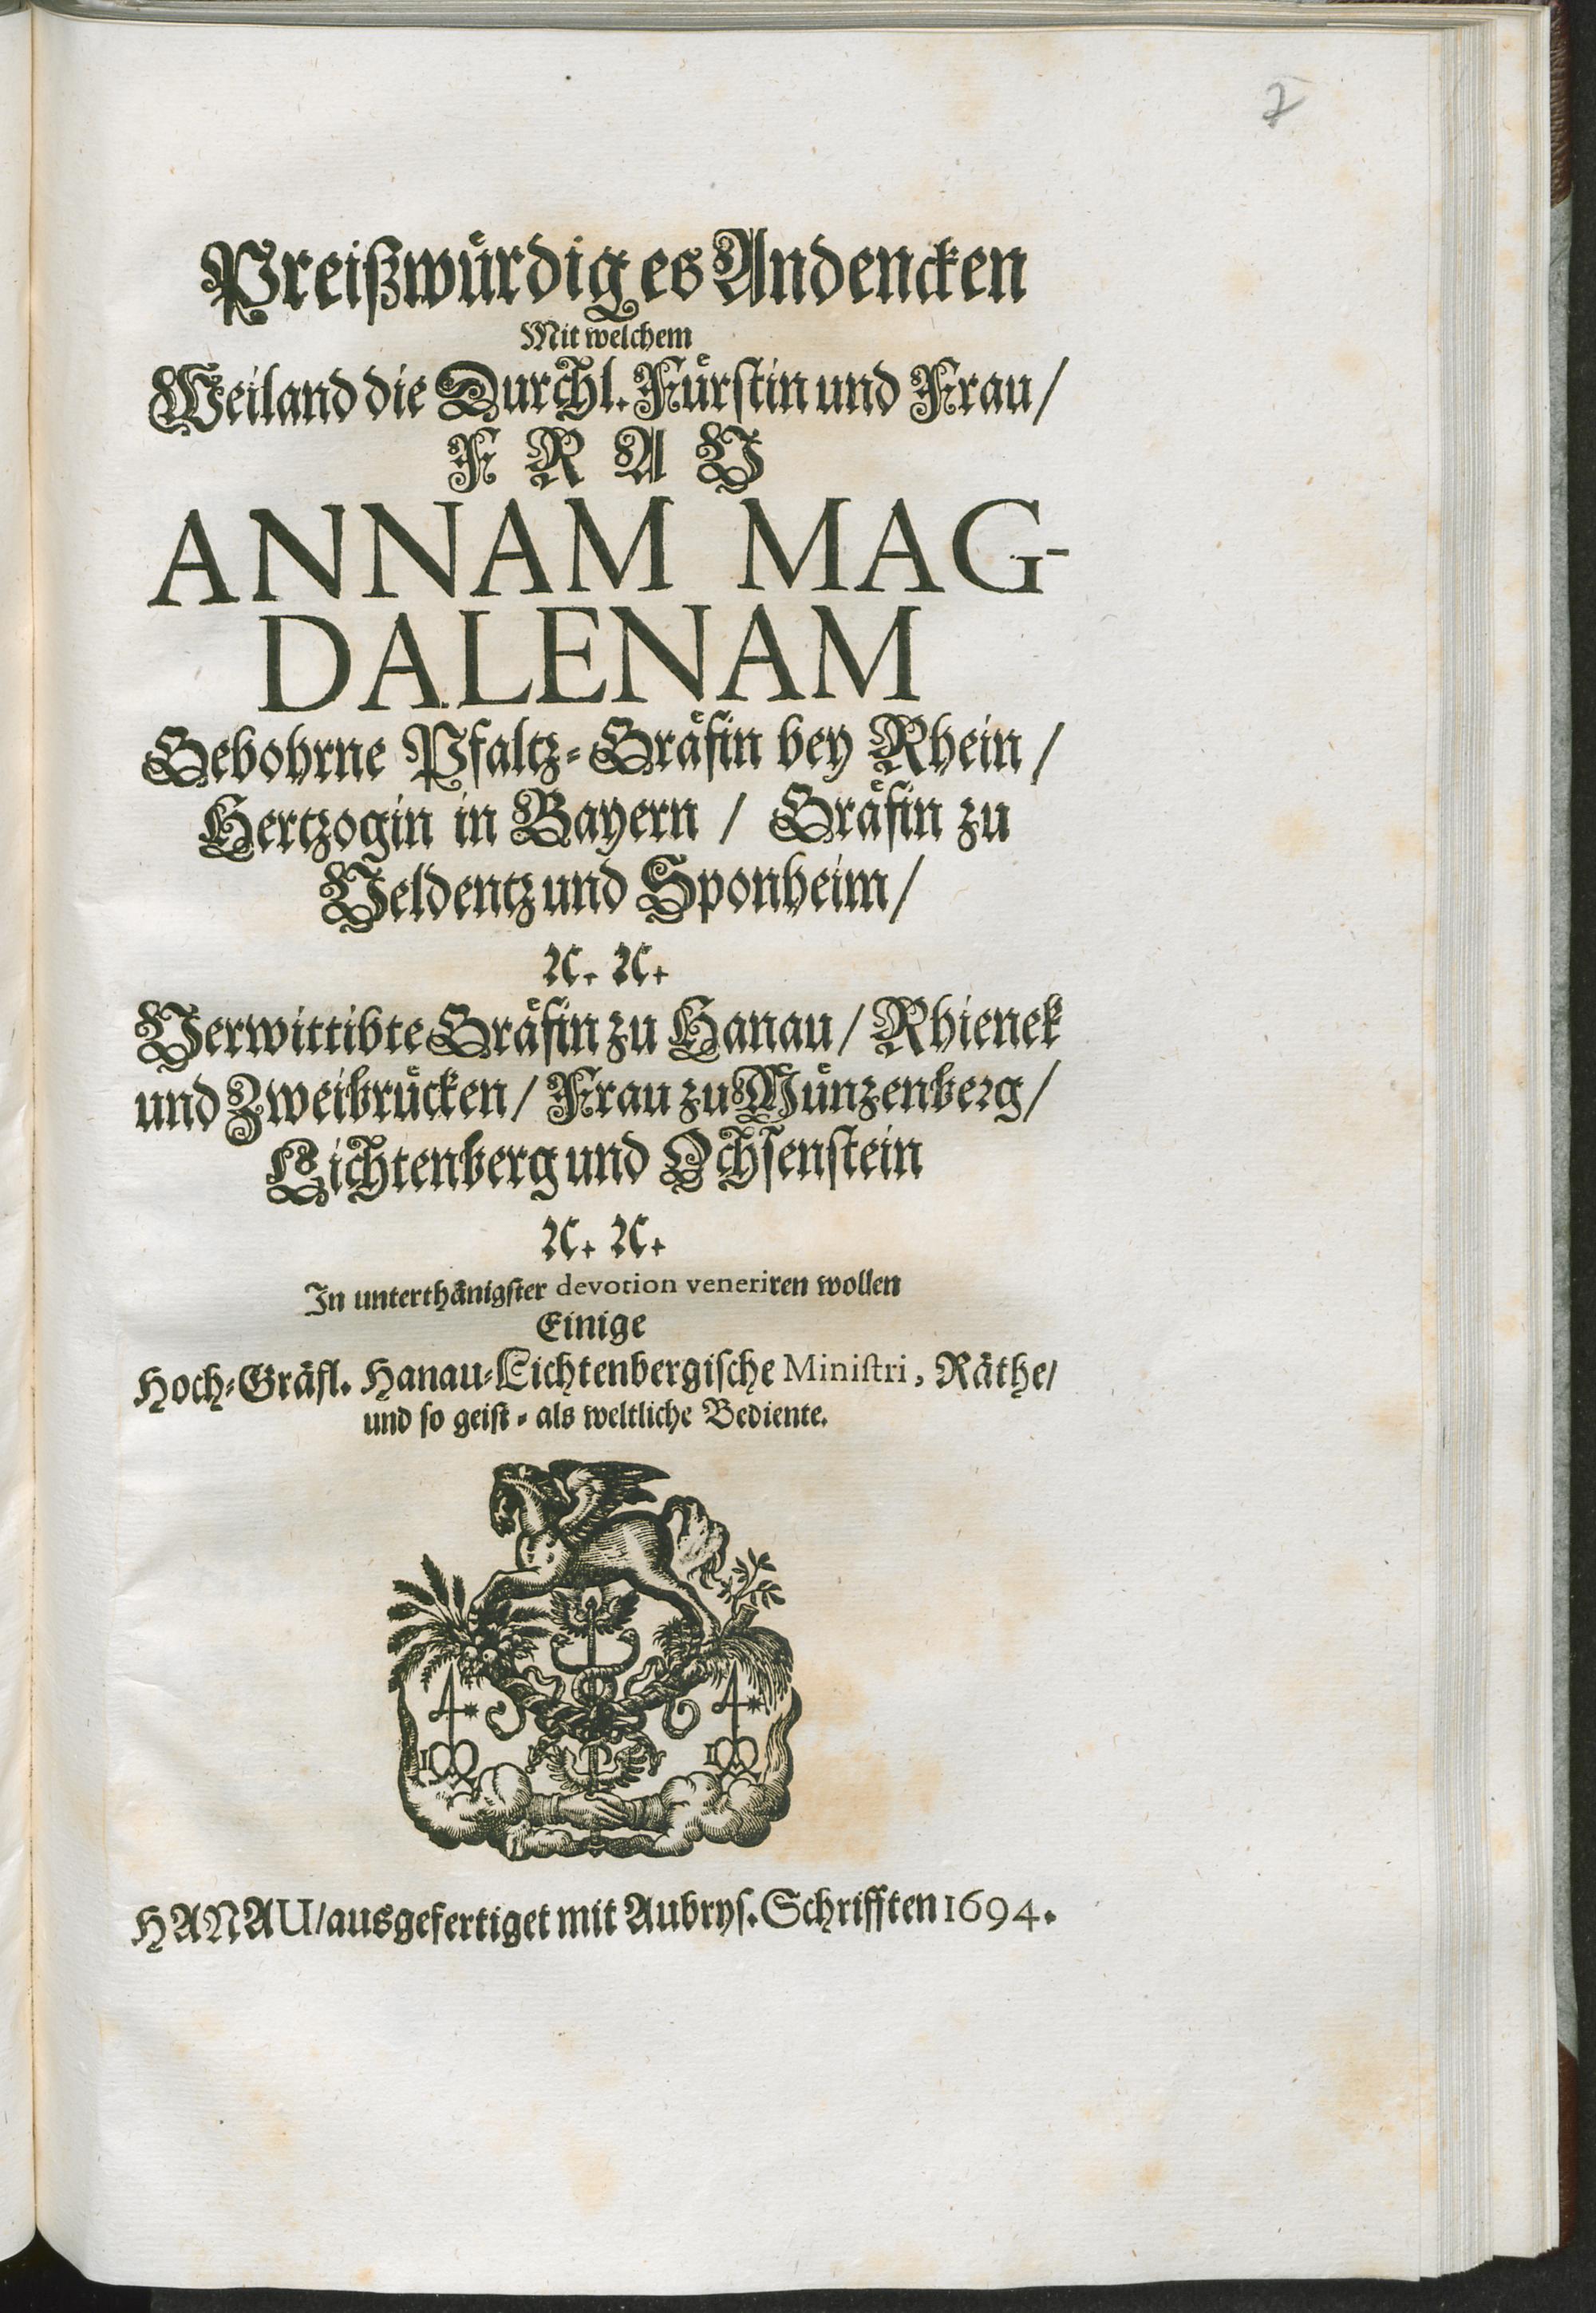 2
Preißwürdiges Andencken
Mit welchem
Weiland die Durchl. Fürstin und Frau/
FRAV
ANNAM MAG-
DALENAM
Gebohrne Pfaltz-Gräfin bey Rhein/
Hertzogin in Bayern / Gräfin zu
Veldentz und Sponheim/
ꝛc. ꝛc.
Verwittibte Gräfin zu Hanau/ Rhienek
und Zweibrücken/ Frau zu Münzenberg/
Lichtenberg und Ochsenstein
ꝛc. ꝛc.
In unterthänigster devotion veneriren wollen
Einige
Hoch-Gräfl. Hanau-Lichtenbergische Ministri, Räthe/
und so geist- als weltliche Bediente.
HANAU/ausgefertiget mit Aubrys. Schrifften 1694.